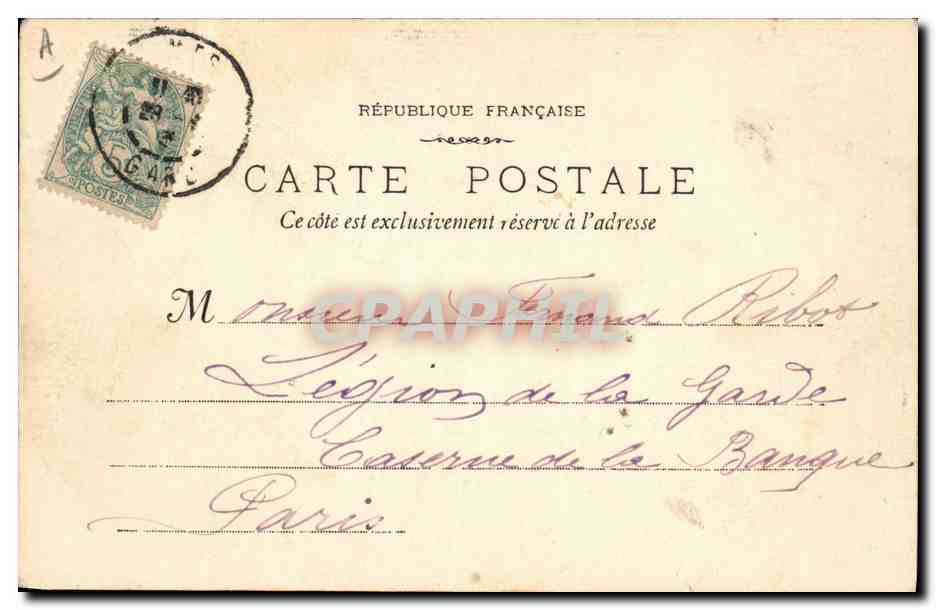 A
GARD
5
POSTES
RÉPUBLIQUE FRANÇAISE
CARTE POSTALE
Ce côté est exclusivement réservé à l'adresse
Monsieur Fernand Ribot
Légion de la Garde
Caserne de la Banque
Paris
CPAPHIL